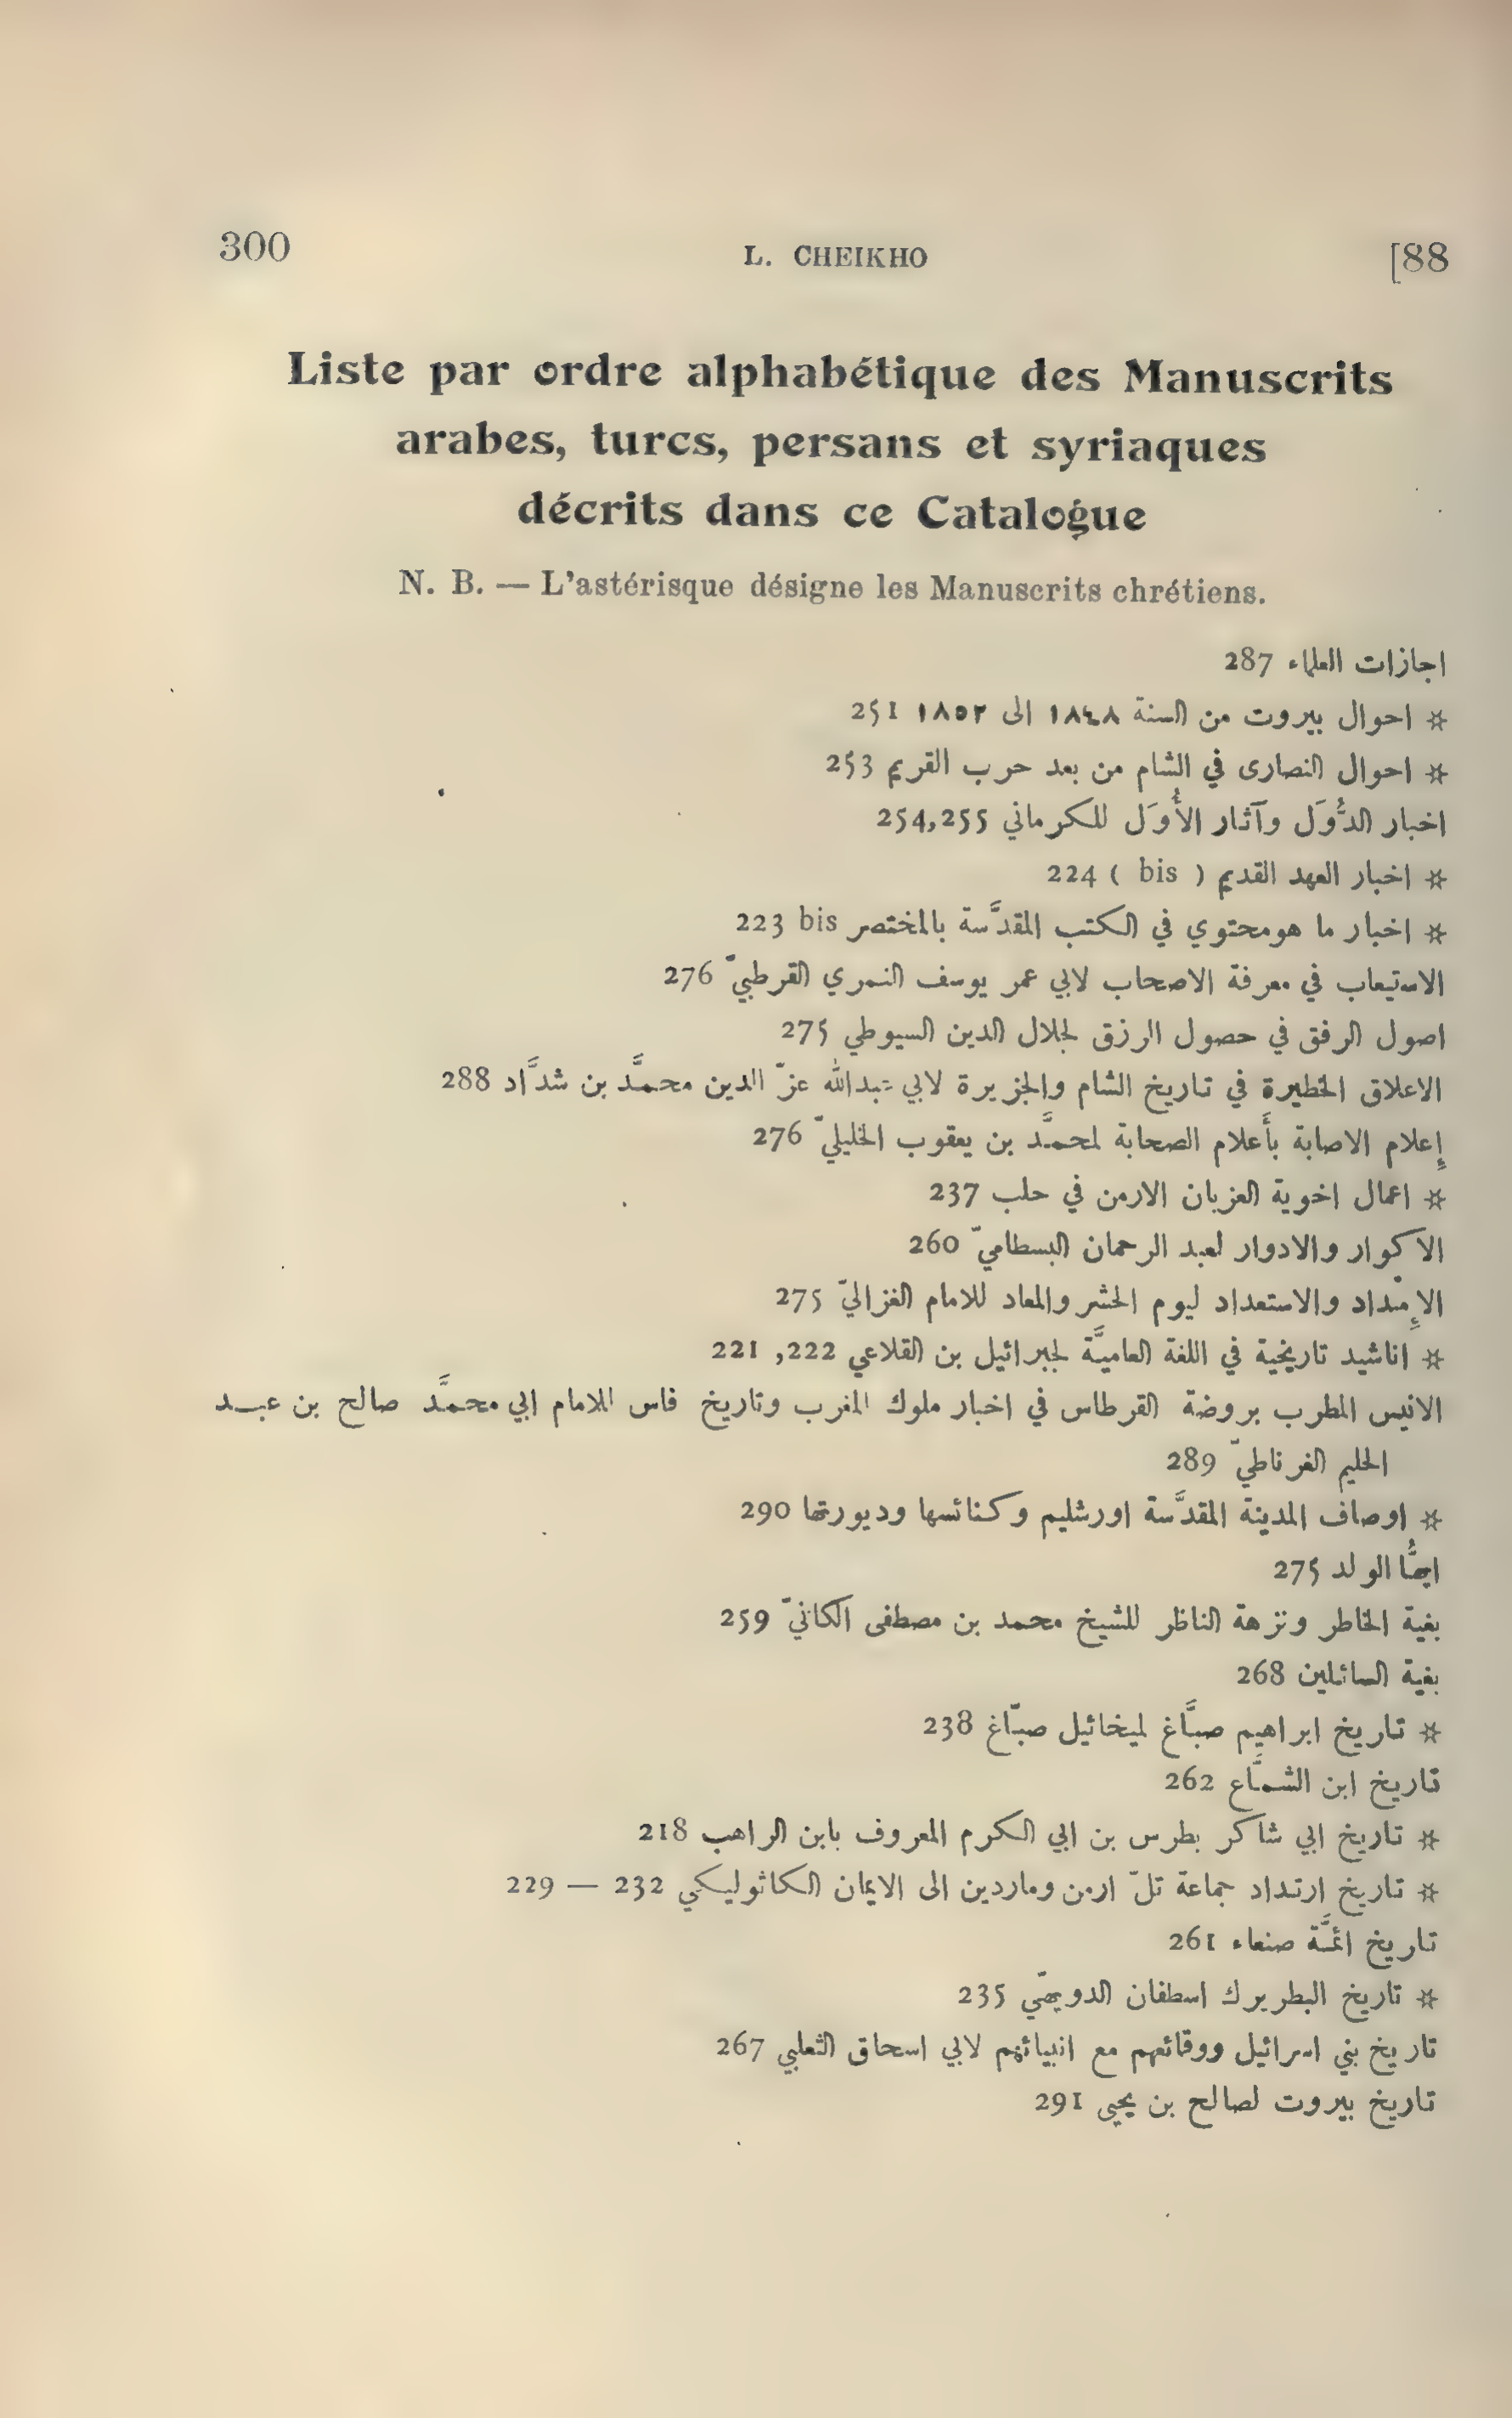 300 L. CHEIKHO [88
Liste par ordre alphabétique des Manuscrits
arabes, turcs, persans et syriaques
décrits dans ce Catalogue
N. B. — L'astérisque désigne les Manuscrits chrétiens.
اجازات العلماء 287
* احوال بيروت من السنة ١٨٤٨ الى ١٨٥٢ 251
* احوال النصارى في الشام من بعد حرب القريم 253
اخبار الدُّوَل وآثار الأُوَل للكرماني 254,255
* اخبار العهد القديم ( bis ) 224
* اخبار ما هو محتوي في الكتب المقدَّسة بالمختصر 223 bis
الاستيعاب في معرفة الاصحاب لابي عمر يوسف النمري القرطبيّ 276
اصول الرفق في حصول الرزق لجلال الدين السيوطي 275
الاعلاق الخطيرة في تاريخ الشام والجزيرة لابي عبدالله عزّ الدين محمَّد بن شدَّاد 288
إعلام الاصابة بأَعلام الصحابة لمحمَّد بن يعقوب الخليليّ 276
* اعمال اخوية العزبان الارمن في حلب 237
الاكوار والادوار لعبد الرحمان البسطاميّ 260
الإمتداد والاستعداد ليوم الحشر والمعاد للامام الغزاليّ 275
* اناشيد تاريخية في اللغة العاميَّة لجبرائيل بن القلاعي 221 ,222
الانيس المطرب بروضة القرطاس في اخبار ملوك المغرب وتاريخ فاس للامام ابي محمَّد صالح بن عبد
الحليم الغرناطيّ 289
* اوصاف المدينة المقدَّسة اورشليم وكنائسها وديورتها 290
ايُّها الولد 275
بغية الخاطر ونزهة الناظر للشيخ محمد بن مصطفى الكانيّ 259
بغية السائلين 268
* تاريخ ابراهيم صبَّاغ لميخائيل صبّاغ 238
تاريخ ابن الشمَّاع 262
* تاريخ ابي شاكر بطرس بن ابي الكرم المعروف بابن الراهب 218
* تاريخ ارتداد جماعة تلّ ارمن وماردين الى الايمان الكاثوليكي 229 — 232
تاريخ ائمَّة صنعاء 261
* تاريخ البطريرك اسطفان الدويهّي 235
تاريخ بني اسرائيل ووقائعهم مع انبيائهم لابي اسحاق الثعلبي 267
تاريخ بيروت لصالح بن يحيى 291